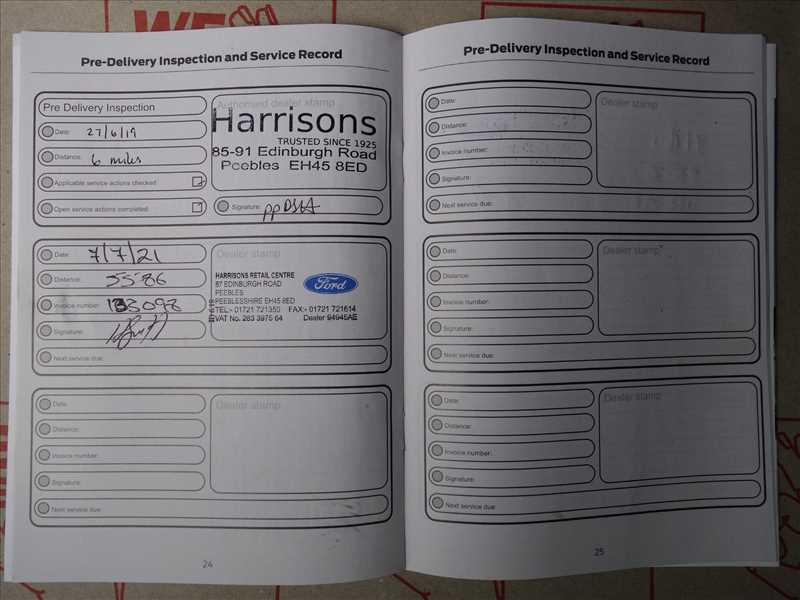 WE
Pre-Delivery Inspection and Service Record
Pre Delivery Inspection
Date: 27/6/19
Distance: 6 miles
Applicable service actions checked
Open service actions completed
Authorised dealer stamp
Harrisons
TRUSTED SINCE 1925
85-91 Edinburgh Road
Peebles EH45 8ED
Signature:
Date: 7/7/21
Distance: 5586
Invoice number: 133098
Signature:
Next service due:
Dealer stamp
HARRISONS RETAIL CENTRE
87 EDINBURGH ROAD
PEEBLES
PEEBLESSHIRE EH45 8ED
TEL:- 01721 721350 FAX:- 01721 721614
VAT No. 263 3975 64 Dealer 94945AE
Ford
Date:
Distance:
Invoice number:
Signature:
Next service due:
Dealer stamp
24
Pre-Delivery Inspection and Service Record
Date:
Distance:
Invoice number:
Signature:
Next service due:
Dealer stamp
Date:
Distance:
Invoice number:
Signature:
Next service due:
Dealer stamp
Date:
Distance:
Invoice number:
Signature:
Next service due:
Dealer stamp
25